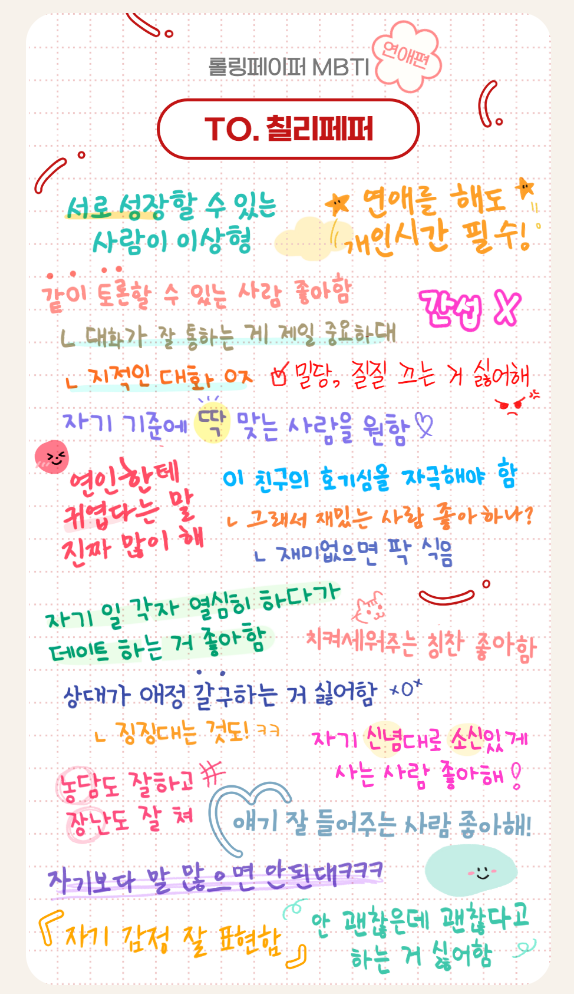 롤링페이퍼 MBTI
연애편
TO. 칠리페퍼
서로 성장할 수 있는
사람이 이상형
연애를 해도
개인시간 필수!
같이 토론할 수 있는 사람 좋아함
간섭 X
ㄴ 대화가 잘 통하는 게 제일 중요하대
ㄴ 지적인 대화 OK
밀당, 질질 끄는 거 싫어해
자기 기준에 딱 맞는 사람을 원함♡
연인한테
귀엽다는 말
진짜 많이 해
이 친구의 호기심을 자극해야 함
ㄴ 그래서 재밌는 사람 좋아하나?
ㄴ 재미없으면 팍 식음
자기 일 각자 열심히 하다가
데이트 하는 거 좋아함
치켜세워주는 칭찬 좋아함
상대가 애정 갈구하는 거 싫어함 x0x
ㄴ 징징대는 것도! ㅋㅋ
자기 신념대로 소신있게
사는 사람 좋아해!
농담도 잘하고
장난도 잘 쳐
얘기 잘 들어주는 사람 좋아해!
자기보다 말 많으면 안된대ㅋㅋㅋ
『자기 감정 잘 표현함』
안 괜찮은데 괜찮다고
하는 거 싫어함